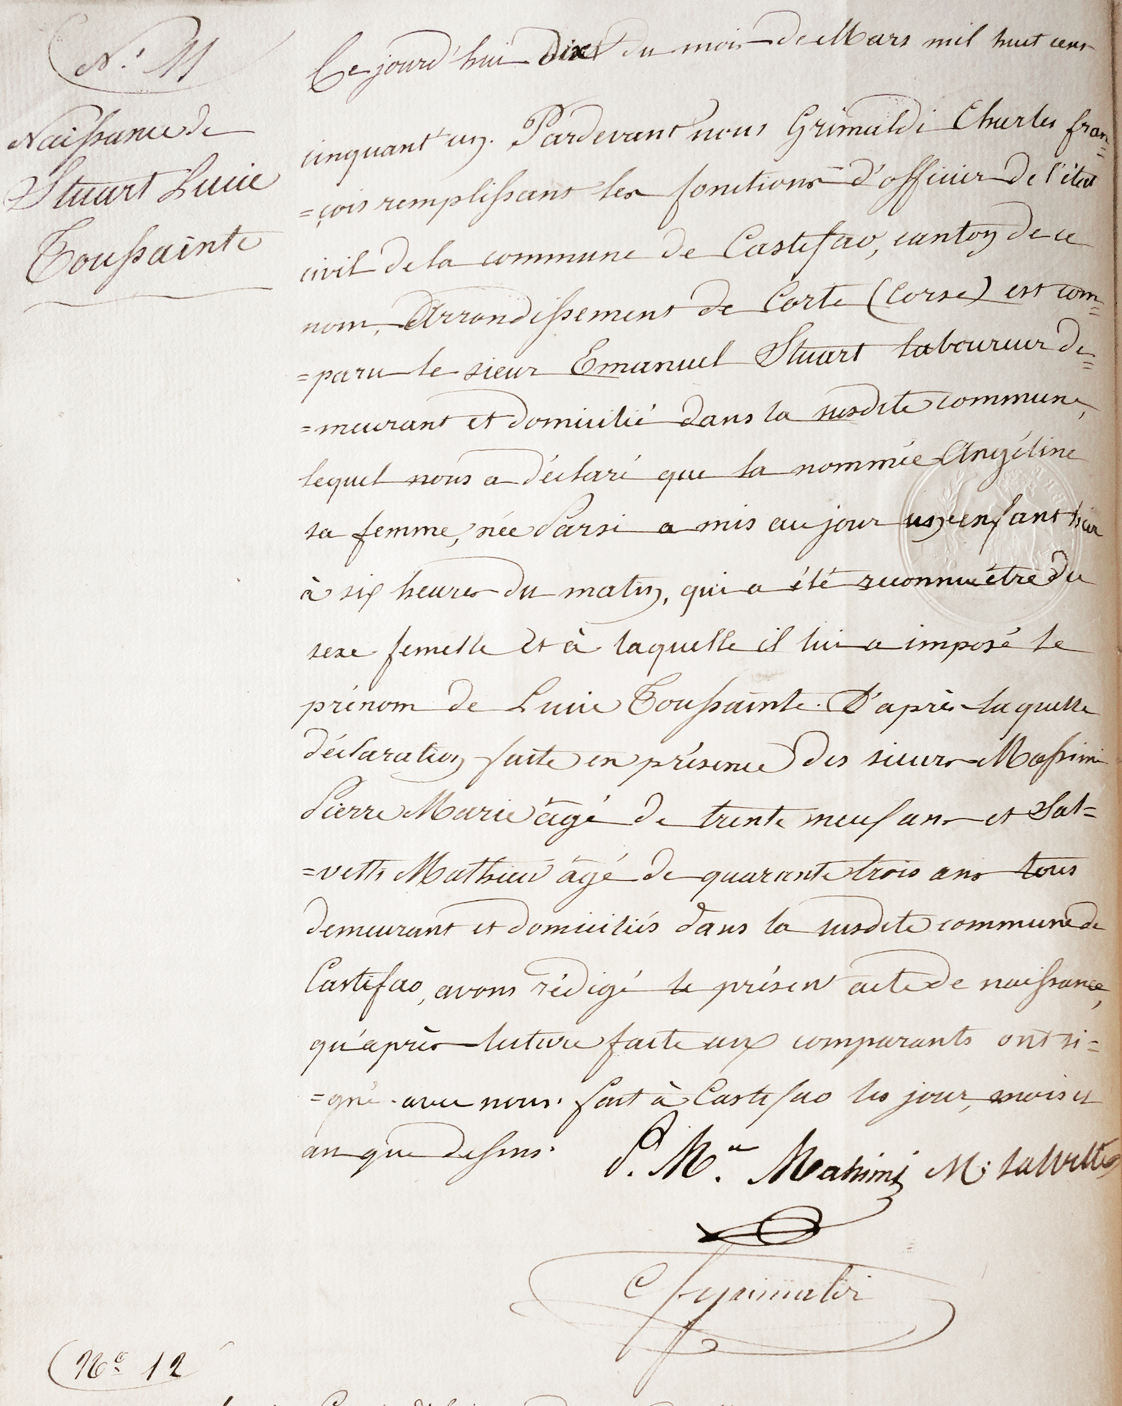 N.° 11
Naissance de
Stuart Lucie
Toussainte
Ce jourd'hui dix du mois de Mars mil huit cent
cinquant'un. Pardevant nous Grimaldi Charles fran=
=çois remplissant les fonctions d'officier de l'état
civil de la commune de Castifao, canton de ce
nom, Arrondissement de Corte (Corse) est com=
=paru le sieur Emanuel Stuart laboureur de=
=meurant et domicilié dans la susdite commune,
lequel nous a déclaré que la nommée Angéline
sa femme, née Parsi a mis au jour un enfant hier
à six heures du matin, qui a été reconnu être du
sexe femelle et à laquelle il lui a imposé le
prénom de Lucie Toussainte. D'après laquelle
déclaration faite en présence des sieurs Massimi
Pierre Marie âgé de trente neuf ans et Sal=
=vetti Mathieu âgé de quarante trois ans tous
demeurant et domiciliés dans la susdite commune de
Castifao, avons rédigé le présent acte de naissance,
qu'après lecture faite aux comparants ont si=
=gné avec nous. fait à Castifao les jour, mois et
an que dessus.
P. M.ie Massimi M. Salvetti
C f Grimaldi
N.° 12